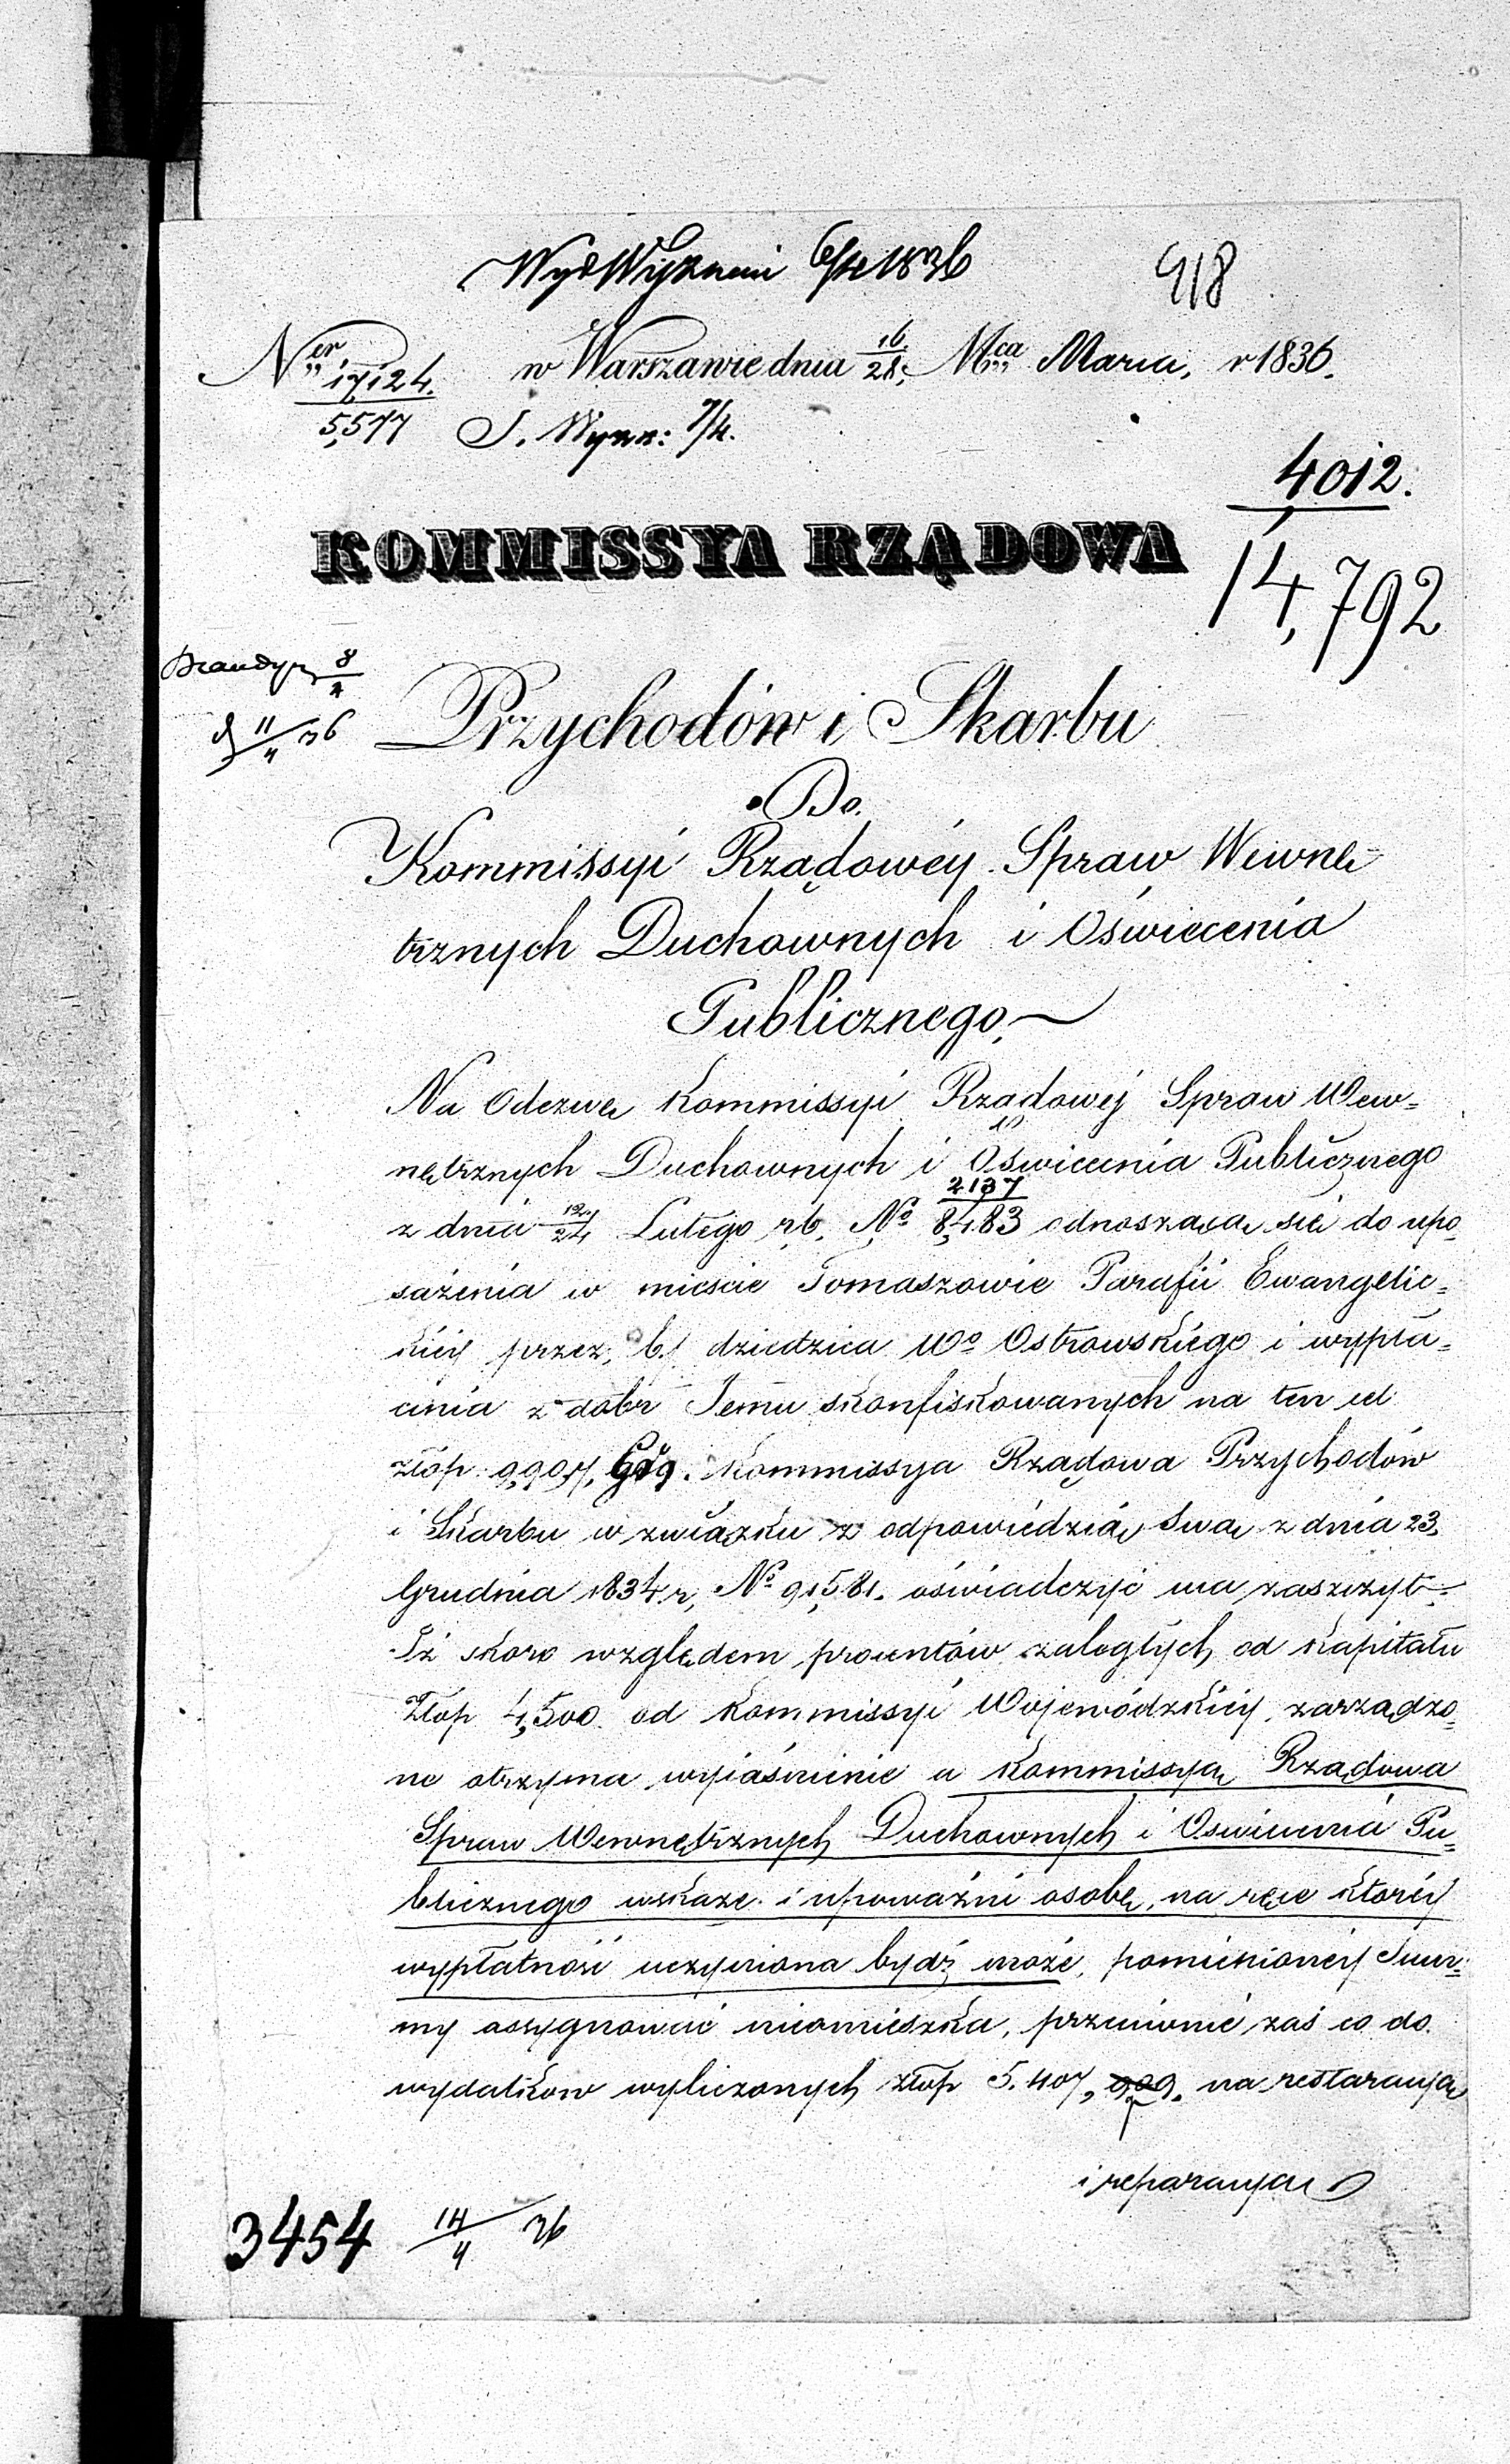 Wyd Wyznań 6/4 1836
918
N<sup>er</sup> 17124. w Warszawie dnia 16/28 M<sup>ca</sup> Marca, r 1836.
5,577 S. Wyzn: 7/4.
4012.
14,792
KOMMISSYA RZĄDOWA
8/4
11/4 36
Przychodów i Skarbu
Do.
Kommissyi Rządowéy Spraw Wewnę=
trznych Duchownych i Oświecenia
Publicznego,
Na Odezwę Kommissyi Rządowéj Spraw Wew=
nętrznych Duchownych i Oświecenia Publicznego
z dnia 12/24 Lutego r.b. N<sup>o</sup> 2137/8,483 odnoszącą się do upo=
sażenia w mieście Tomaszowie Parafii Ewangelic=
kiey przez b. dziedzica W<sup>o</sup> Ostrowskiego i wypła=
cenia z dobr Jemu skonfiskowanych na ten cel
złop. 9,907, Kommissya Rządowa Przychodów
i Skarbu w związku z odpowiedzią swą z dnia 23
Grudnia 1834 r, N<sup>o</sup> 91,581. oświadczyć ma zaszczyt:
Iż skoro względem procentów zaległych od kapitału
Złop 4,500. od Kommissyi Wojewódzkiéy zarządzo=
ne otrzyma wyjaśnienie a Kommissya Rządowa
Spraw Wewnętrznych Duchownych i Oświecenia Pu=
blicznego wskaże i upoważni osobę, na ręce któréy
wypłatność uczyniona bydź może, pomienionéy Sum=
my assygnować nieomieszka, przeciwnie zaś co do
wydatków wyliczonych złop 5.407, na restauracyą
i reparacyą
3454 14/4 36